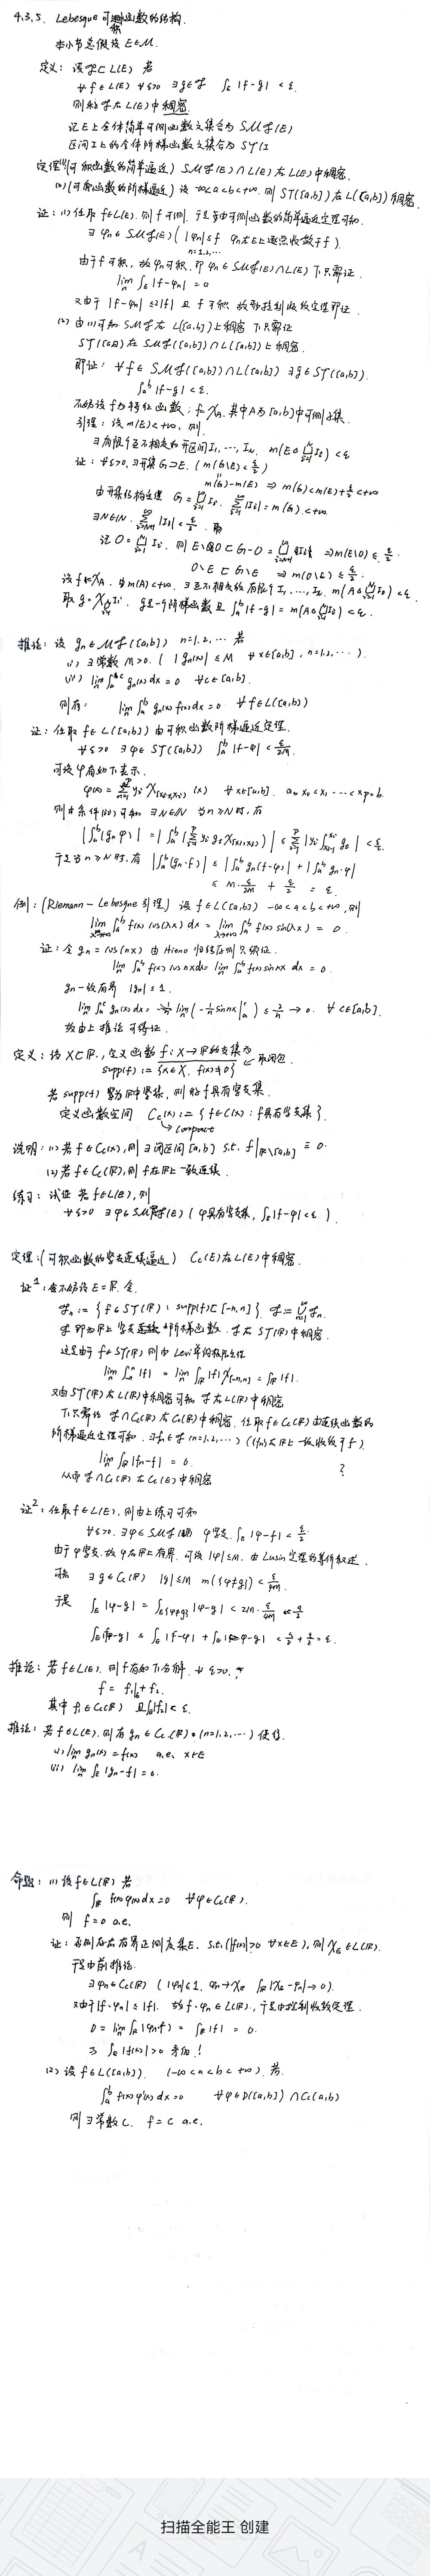 4.3.5. Lebesgue 可积函数的结构.
本小节总假设 E∈M.
定义: 设 F⊂L(E) 若
∀f∈L(E) ∀ε>0 ∃g∈F ∫_E |f-g| < ε.
则称 F 在 L(E) 中稠密.
记 E 上全体简单可测函数之集合为 SMF(E)
区间 I 上的全体阶梯函数之集合为 ST(I)
定理: (1) (可积函数的简单逼近) SMF(E)∩L(E) 在 L(E) 中稠密.
(2) (可积函数的阶梯逼近) 设 -∞<a<b<+∞. 则 ST([a,b]) 在 L([a,b]) 稠密.
证: (1) 任取 f∈L(E). 则 f 可测. 于是由可测函数的简单逼近定理可知
∃ φn∈SMF(E) ( |φn|≤f φn 在 E 上逐点收敛于 f ).
n=1,2,…
由于 f 可积, 故 φn 可积. 即 φn∈SMF(E)∩L(E) 下只需证.
lim_n ∫_E |f-φn| = 0
又由于 |f-φn| ≤ 2|f| 且 f 可积 故由控制收敛定理即证.
(2) 由 (1) 可知 SMF 在 L([a,b]) 上稠密 下只需证
ST([a,b]) 在 SMF([a,b])∩L([a,b]) 上稠密.
即证: ∀f∈SMF([a,b])∩L([a,b]) ∃g∈ST([a,b]).
∫_a^b |f-g| < ε.
不妨设 f 为特征函数: f=χ_A. 其中 A 为 [a,b] 中可测子集.
引理: 设 m(E)<+∞, 则
∃有限个互不相交的开区间 I1,…,IN. m(E△⋃_{i=1}^N Ii) < ε
证: ∀ε>0, ∃开集 G⊃E. ( m(G\E) < ε/2 )
m(G)-m(E) ⇒ m(G)<m(E)+ε/2<+∞
由开集结构定理 G=⋃_{i=1}^∞ Ii. ∑_{i=1}^∞ |Ii| = m(G).<+∞
∃N∈ℕ. ∑_{i=N+1}^∞ |Ii| < ε/2. 取
记 O=⋃_{i=1}^N Ii. 则 E\O ⊂ G-O = ⋃_{i=N+1}^∞ Ii ⇒ m(E\O) ≤ ε/2.
O\E ⊂ G\E ⇒ m(O\E) ≤ ε/2.
设 f=χ_A. 由 m(A)<+∞. ∃互不相交的有限个 I1,…,IN. m(A△⋃_{i=1}^N Ii) < ε
取 g=χ_{⋃Ii}. g是一个阶梯函数 且 ∫_a^b |f-g| = m(A△⋃_{i=1}^N Ii) < ε.
推论: 设 gn∈MF([a,b]) n=1,2,… 若
(i) ∃常数 M>0. ( |gn(x)| ≤ M ∀x∈[a,b], n=1,2,… ).
(ii) lim_n ∫_a^c gn(x) dx = 0 ∀c∈[a,b].
则有: lim_n ∫_a^b gn(x) f(x) dx = 0 ∀f∈L([a,b])
证: 任取 f∈L([a,b]) 由可积函数阶梯逼近定理.
∀ε>0 ∃φ∈ST([a,b]) ∫_a^b |f-φ| < ε/2M.
可设 φ 有如下表示.
φ(x) = ∑_{i=1}^p yi χ_{[xi-1,xi)} (x) ∀x∈[a,b]. a=x0<x1<…<xp=b.
则由条件(ii)可知 ∃N∈ℕ 当 n≥N 时, 有
|∫_a^b (gn φ)| = |∫_a^b (∑_{i=1}^p yi gn χ_{[xi-1,xi)})| ≤ ∑_{i=1}^p |yi ∫_{xi-1}^{xi} gn| < ε/2.
于是当 n≥N 时, 有 |∫_a^b (gn·f)| ≤ |∫_a^b gn(f-φ)| + |∫_a^b gn·φ|
≤ M·ε/2M + ε/2 = ε.
例: (Riemann-Lebesgue 引理) 设 f∈L([a,b]) -∞<a<b<+∞, 则
lim_{λ→+∞} ∫_a^b f(x) cos(λx) dx = lim_{λ→+∞} ∫_a^b f(x) sin(λx) = 0.
证: 令 gn=cos(nx) 由 Hiene 归结原则 只须证.
lim_n ∫_a^b f(x) cos nx dx = lim_n ∫_a^b f(x) sin nx dx = 0.
gn一致有界 |gn|≤1.
lim_n ∫_a^c gn(x) dx = lim_n (-1/n sin nx|_a^c) ≤ 2/n → 0. ∀c∈[a,b].
故由上推论可得证.
定义: 设 X⊂ℝ, 定义函数 f: X→ℝ 的支集为
supp(f) := {x∈X. f(x)≠0} ← 取闭包.
若 supp(f) 为 ℝ 中紧集, 则称 f 具有紧支集.
定义函数空间 Cc(X) := { f∈C(X) : f具有紧支集 }.
↳ compact
说明: (1) 若 f∈Cc(X), 则 ∃闭区间 [a,b] s.t. f|_{ℝ\[a,b]} ≡ 0.
(2) 若 f∈Cc(ℝ), 则 f 在 ℝ 上一致连续.
练习: 试证 若 f∈L(E), 则
∀ε>0 ∃φ∈SMF(E) ( φ具有紧支集, ∫_E |f-φ| < ε ).
定理: (可积函数的紧支连续逼近) Cc(E) 在 L(E) 中稠密.
证¹: 不妨设 E=ℝ. 令.
Fn := { f∈ST(ℝ) : supp(f)⊂[-n,n] }. F := ⋃_{n=1}^∞ Fn.
F 即为 ℝ 上紧支阶梯函数. F 在 ST(ℝ) 中稠密.
这是由于 f∈ST(ℝ) 则由 Levi 单调收敛定理
lim_n ∫_{-n}^n |f| = lim_n ∫_ℝ |f| χ_{[-n,n]} = ∫_ℝ |f|.
又由 ST(ℝ) 在 L(ℝ) 中稠密可知 F 在 L(ℝ) 中稠密
下只需证 F∩Cc(ℝ) 在 Cc(ℝ) 中稠密. 任取 f∈Cc(ℝ) 由连续函数的
阶梯逼近定理可知. ∃fn∈F (n=1,2,…) ( {fn} 在 ℝ 上一致收敛于 f ).
lim_n ∫_ℝ |fn-f| = 0.
从而 F∩Cc(ℝ) 在 Cc(E) 中稠密 ?
证²: 任取 f∈L(E), 则由上练习可知
∀ε>0. ∃φ∈SMF φ紧支. ∫_E |φ-f| < ε/2.
由于 φ 紧支. 故 φ 在 ℝ 上有界. 可设 |φ|≤M. 由 Lusin 定理的等价叙述.
可知 ∃ g∈Cc(ℝ) |g|≤M m({φ≠g}) < ε/4M.
于是 ∫_E |φ-g| = ∫_{E{φ≠g}} |φ-g| < 2M·ε/4M = ε/2
∫_E |f-g| ≤ ∫_E |f-φ| + ∫_E |φ-g| < ε/2 + ε/2 = ε.
推论: 若 f∈L(E). 则 f 有如下分解. ∀ε>0.
f = f1|_E + f2.
其中 f1∈Cc(ℝ) 且 ∫_E |f2| < ε.
推论: 若 f∈L(E). 则有 gn∈Cc(ℝ) (n=1,2,…) 使得.
(i) lim_n gn(x) = f(x) a.e. x∈E
(ii) lim_n ∫_E |gn-f| = 0.
命题: (1) 设 f∈L(ℝ) 若
∫_ℝ f(x) φ(x) dx = 0 ∀φ∈Cc(ℝ).
则 f=0 a.e.
证: 否则存在有界正测度集 E. s.t. (|f(x)|>0 ∀x∈E), 则 χ_E∈L(ℝ).
于是由前推论.
∃φn∈Cc(ℝ) ( |φn|≤1. φn→χ_E ∫_ℝ |χ_E-φn| → 0 ).
又由于 |f·φn| ≤ |f|. 故 f·φn∈L(ℝ), 于是由控制收敛定理.
0 = lim_n ∫_ℝ |φn f| = ∫_E |f| = 0.
与 ∫_E |f(x)| > 0 矛盾!
(2) 设 f∈L([a,b]). (-∞<a<b<+∞). 若.
∫_a^b f(x) φ'(x) dx = 0 ∀φ∈D([a,b])∩Cc(a,b)
则 ∃常数 C. f=C a.e.
扫描全能王 创建